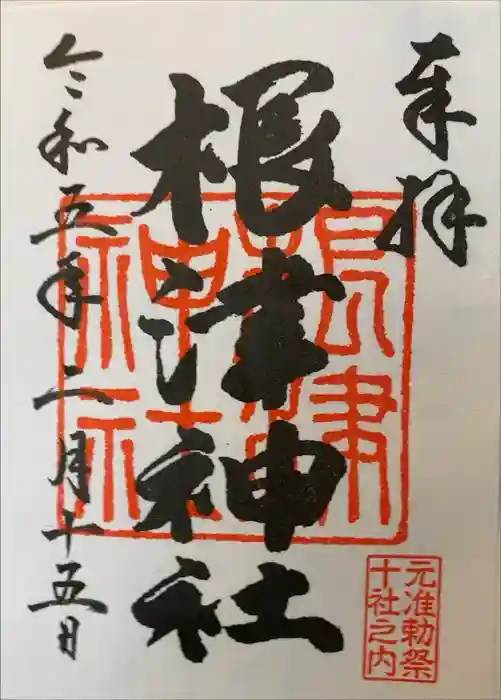 奉拝
根津神社
令和五年二月十五日
根津
神社
元准勅祭
十社之内